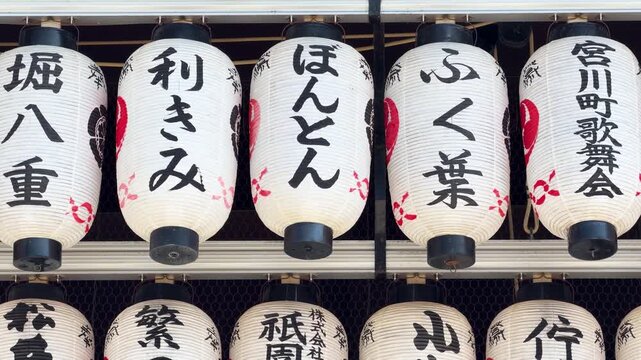 堀八重
利きみ
ぼんとん
ふく葉
宮川町歌舞会
松
繁の
株式会社
祇園
小
佇